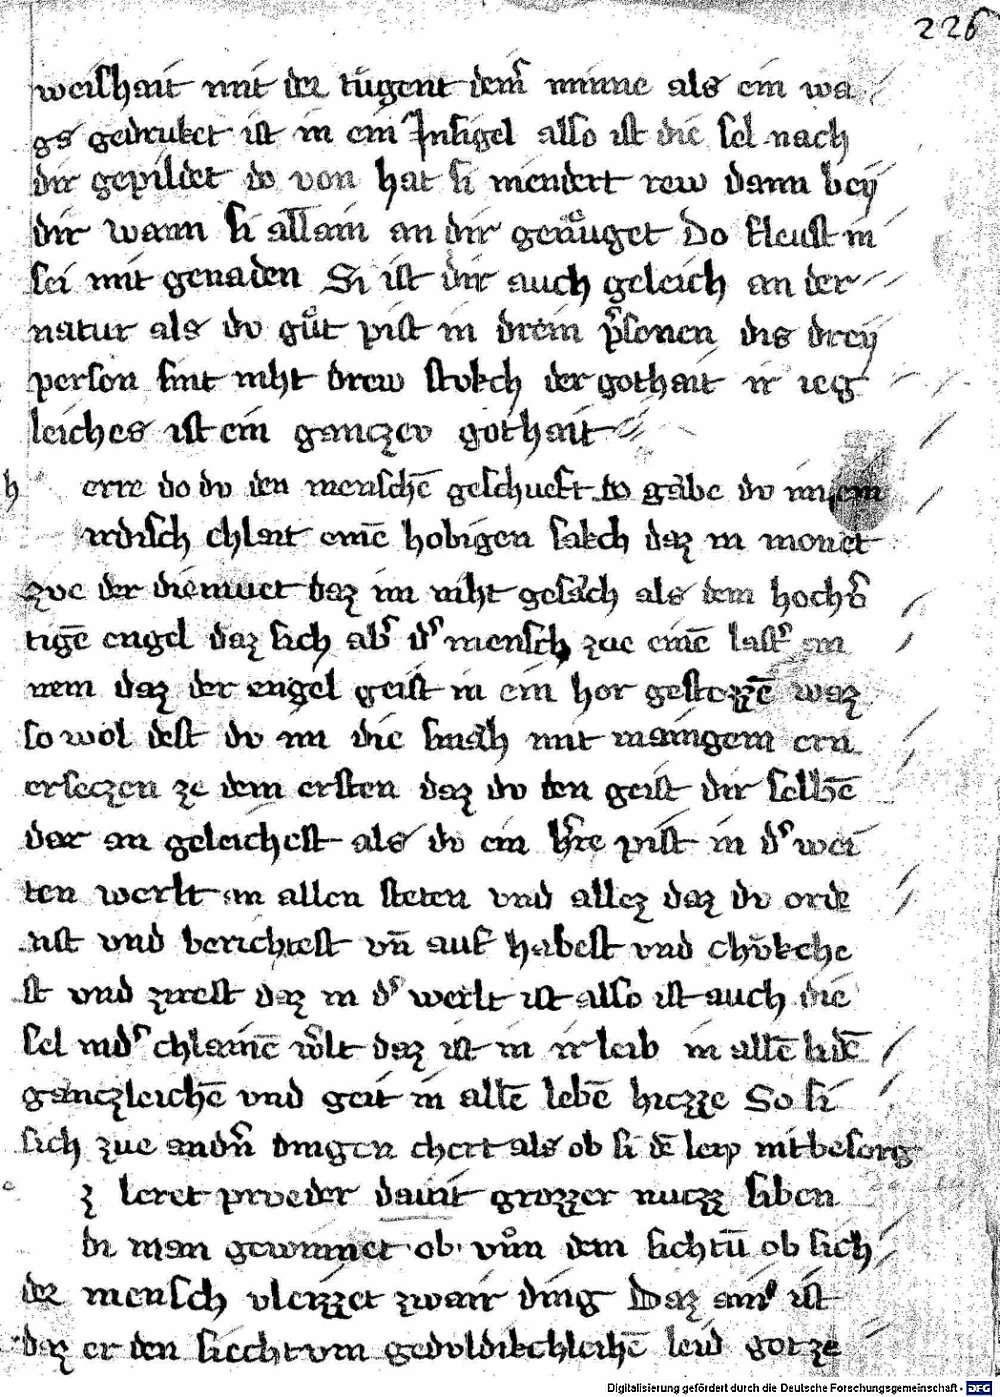 226
weishait mit der tugent dein͛ minne als ein wa
gs gedruket ist in ein Jnsigel also ist die sel nach
dir gepildet do von hat si niendert rew dann beÿ
dir wann si allain an dir genüget Do fleust in
sei mit genaden Si ist dir auch geleich an der
natur als du guͦt pist in drein p͛sonen dis dreÿ
person sint niht drew stukch der gothait ir ieg
leiches ist ein ganczev gothait
h erre do du den menschē geschueft do gäbe du im ein
irdisch chlait einē hobigen sakch daz in monet
zve der diemuet daz im niht geschäch als dem hochv͛
tigē engel daz sich ab͛ d͛ mensch zue einē last͛ ei
nem daz der engel geist in ein hor gestozzē waz
so wol dest du im die smäh mit manigem ern
erseczen ze dem ersten daz du den geist dir selbē
dar an geleichest als du ein h͛re pist in d͛ wei
ten werlt an allen steten vnd allez daz du orde
nst vnd berichtest vn̄ auf habest vnd chükche
st vnd zirest daz in d͛ werlt ist also ist auch die
sel in d͛ chlainē w͛lt daz ist in ir leib in allē lidē
ganczleichē vnd geit in allē lebē hiczze So si
sich zue andn͛ dingen chert als ob si dē leip niht besorg
z leret prveder dauit grozzer nuczz siben
di man gewinnet ob vͦn dem sichtū ob sich
der mensch vleizzet zwair ding Daz ain͛ ist
daz er den siechtum gedvldikchleihē leid got ze
Digitalisierung gefördert durch die Deutsche Forschungsgemeinschaft - DFG